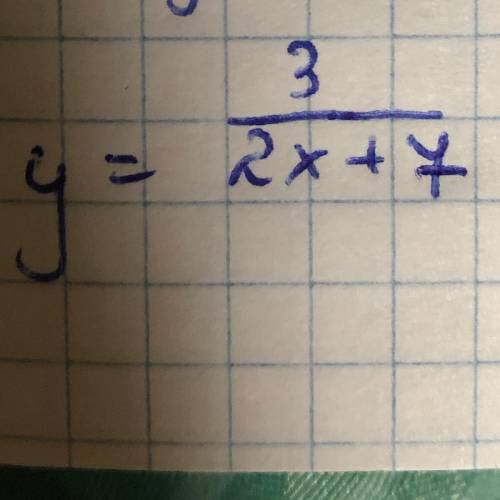 y = 3 / (2x + 7)